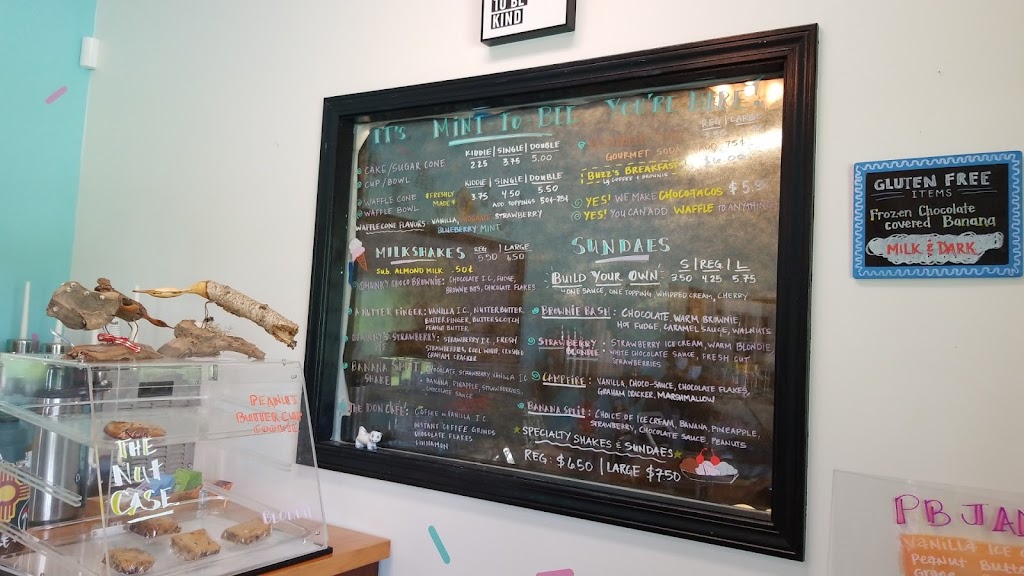 TO BE
KIND
IT'S MINT TO BEE YOU'RE HERE!
KIDDIE | SINGLE | DOUBLE
CAKE/SUGAR CONE 2.25 3.75 5.00
CUP/BOWL
KIDDIE | SINGLE | DOUBLE
WAFFLE CONE *FRESHLY MADE* 3.75 4.50 5.50
WAFFLE BOWL ADD TOPPINGS 50¢-75¢
WAFFLE CONE FLAVORS: VANILLA, STRAWBERRY
BLUEBERRY MINT
MILKSHAKES REG | LARGE
5.50 6.50
SUB. ALMOND MILK .50¢
CHUNKY CHOCO BROWNIE: CHOCOLATE I.C., FUDGE,
BROWNIE BITS, CHOCOLATE FLAKES
A NUTTER FINGER: VANILLA I.C., NUTTER BUTTER,
BUTTERFINGER, BUTTERSCOTCH
PEANUT BUTTER
STRAWBERRY: STRAWBERRY I.C., FRESH
STRAWBERRIES, COOL WHIP, CRUSHED
GRAHAM CRACKER
BANANA SPLIT SHAKE: CHOCOLATE, STRAWBERRY, VANILLA I.C.
BANANA, PINEAPPLE, STRAWBERRIES
CHOCOLATE SAUCE
THE DON CAFE: COFFEE or VANILLA I.C.
INSTANT COFFEE GRINDS
CHOCOLATE FLAKES
CINNAMON
REG | LARGE
GOURMET SODA
BUZZ'S BREAKFAST
COFFEE & BROWNIE
YES! WE MAKE CHOCOTACOS
YES! YOU CAN ADD WAFFLE TO ANYTHING
SUNDAES
S | REG | L
BUILD YOUR OWN: 3.50 4.25 5.75
ONE SAUCE, ONE TOPPING, WHIPPED CREAM, CHERRY
BROWNIE BASH: CHOCOLATE WARM BROWNIE,
HOT FUDGE, CARAMEL SAUCE, WALNUTS
STRAWBERRY BLONDIE: STRAWBERRY ICE CREAM, WARM BLONDIE
WHITE CHOCOLATE SAUCE, FRESH CUT
STRAWBERRIES
CAMPFIRE: VANILLA, CHOCO-SAUCE, CHOCOLATE FLAKES,
GRAHAM CRACKER, MARSHMALLOW
BANANA SPLIT: CHOICE OF ICE CREAM, BANANA, PINEAPPLE,
STRAWBERRY, CHOCOLATE SAUCE, PEANUTS
*SPECIALTY SHAKES & SUNDAES*
REG: $6.50 | LARGE $7.50
GLUTEN FREE
ITEMS
Frozen Chocolate
covered Banana
MILK & DARK
PEANUT
BUTTER CUP
COOKIE
THE
NUT
CASE
PBJ
VANILLA ICE
PEANUT BUTT